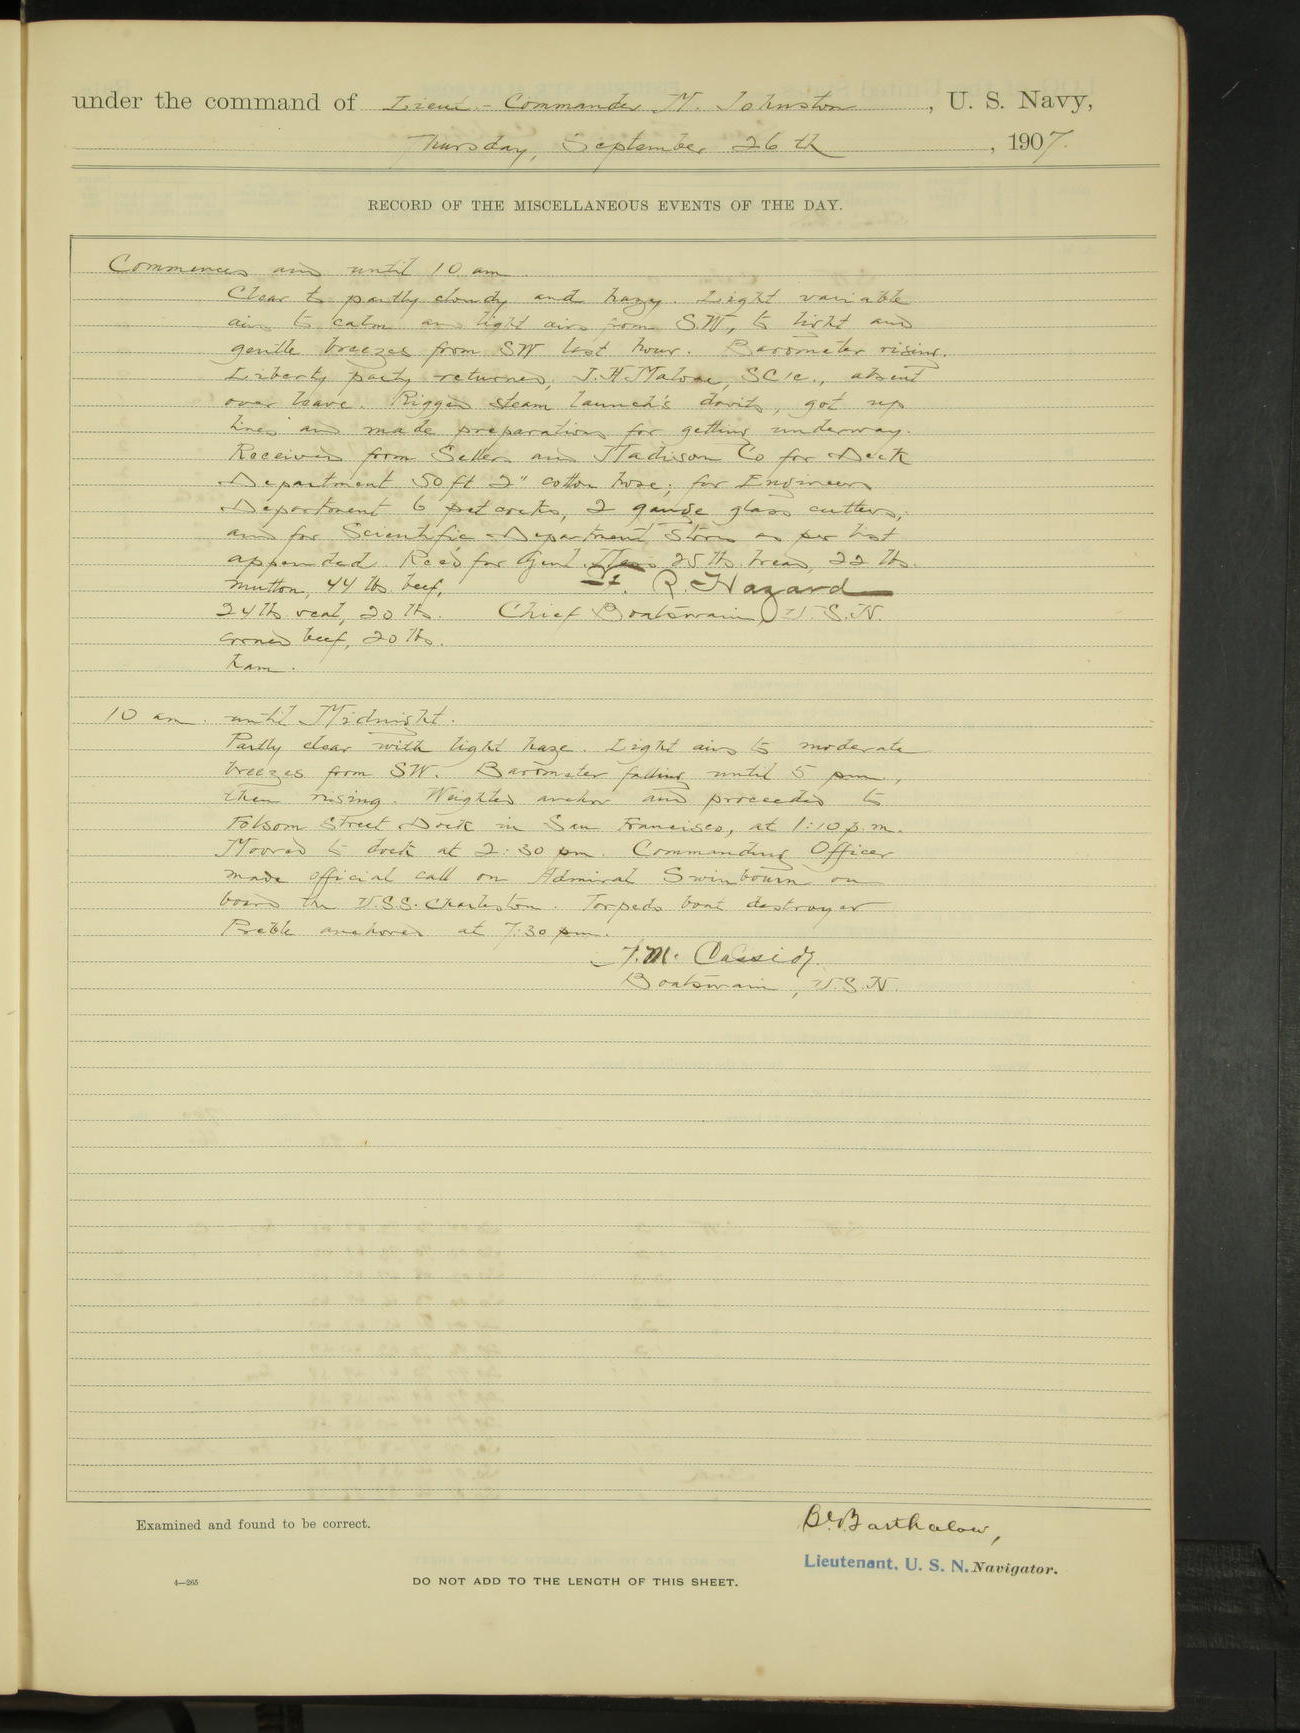 under the command of Lieut.-Commander M. Johnston, U. S. Navy,
Thursday, September 26th, 1907.
RECORD OF THE MISCELLANEOUS EVENTS OF THE DAY.
Commences and until 10 am
Clear to partly cloudy and hazy. Light variable
airs to calm and light airs from SW, to light and
gentle breezes from SW last hour. Barometer rising.
Liberty party returned, J.H. Malone, SC1c., absent
over leave. Rigged steam launch's davits, got up
lines and made preparations for getting underway.
Received from Sellers and Madison Co for Deck
Department 50 ft 2" cotton hose; for Engineers
Department 6 pet cocks, 2 gauge glass cutters;
and for Scientific Department Stores as per list
appended. Rec'd for Genl. Mess 25 lbs. bread, 22 lbs.
mutton, 44 lbs. beef,
R. Hazard
24 lbs veal, 20 lbs.
Chief Boatswain, U.S.N.
corned beef, 20 lbs.
ham.
10 am. until Midnight.
Partly clear with light haze. Light airs to moderate
breezes from SW. Barometer falling until 5 pm,
then rising. Weighed anchor and proceeded to
Folsom Street Dock in San Francisco, at 1:10 p.m.
Moored to dock at 2:30 pm. Commanding Officer
made official call on Admiral Swinbourn on
board the U.S.S. Charleston. Torpedo boat destroyer
Preble anchored at 7:30 pm.
F.M. Cassidy
Boatswain, U.S.N.
Examined and found to be correct.
Barthalow,
Lieutenant. U. S. N. Navigator.
4—265
DO NOT ADD TO THE LENGTH OF THIS SHEET.